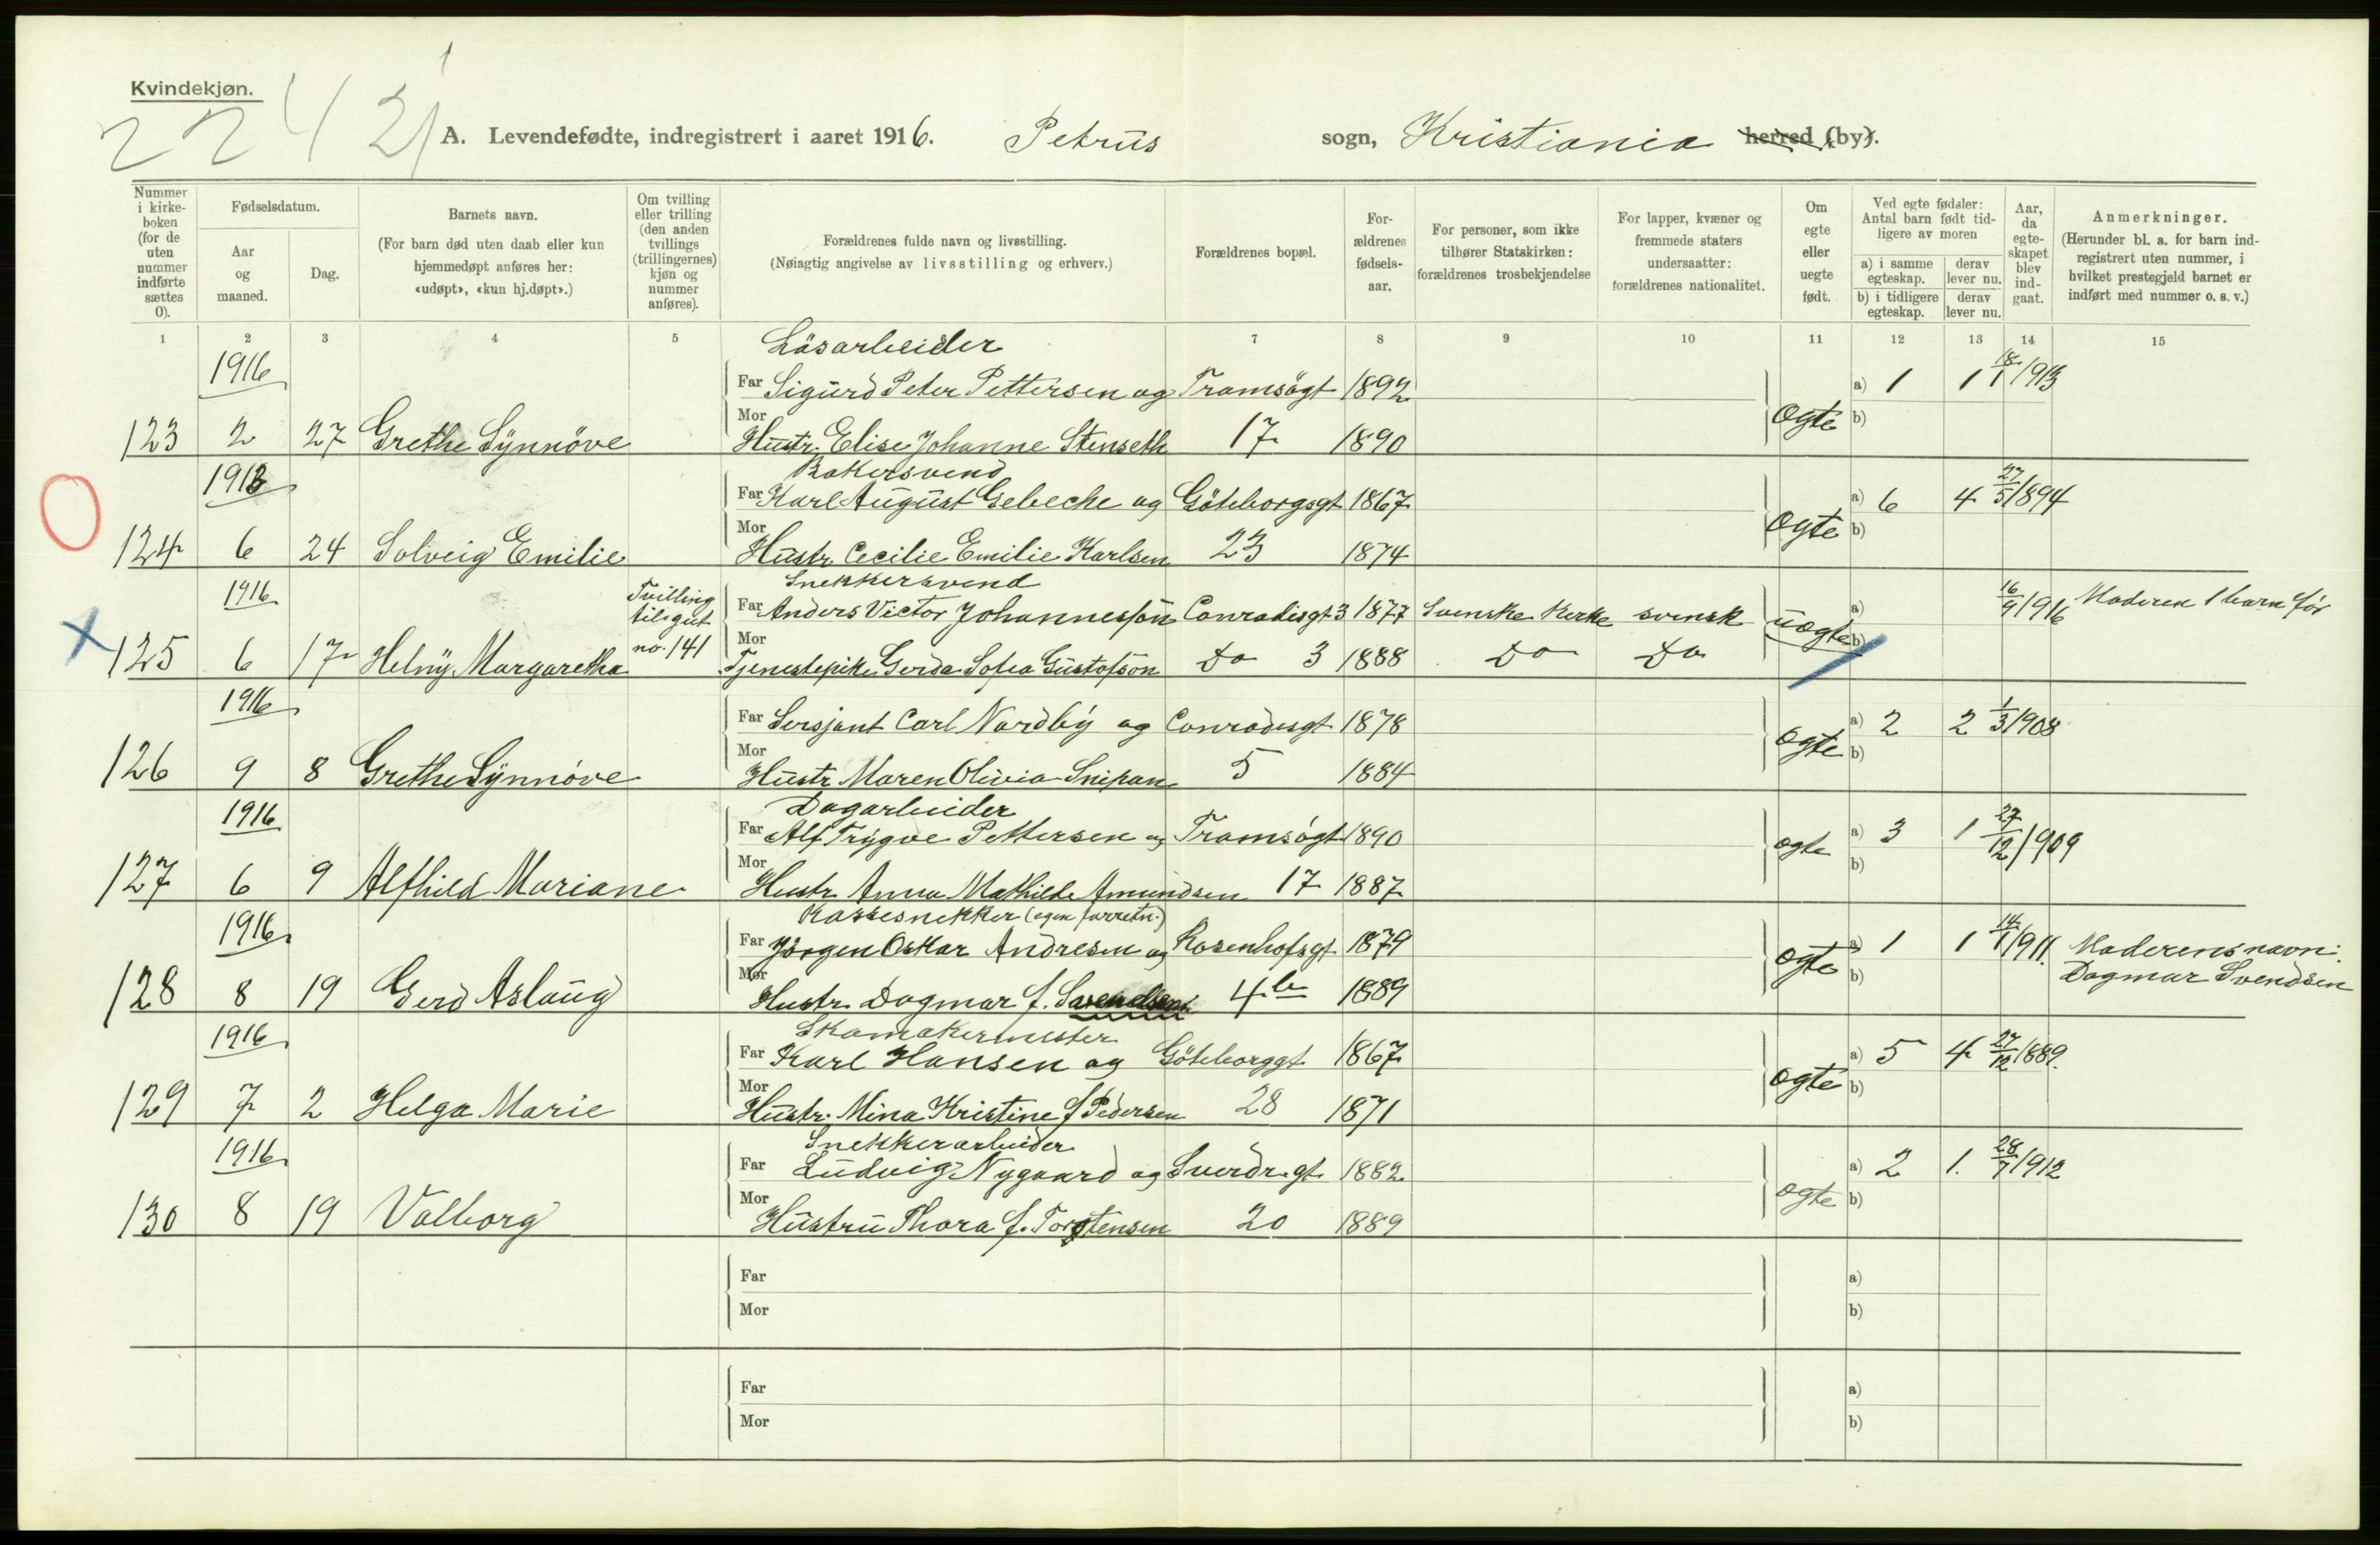 Kvindekjøn.
2242
A. Levendefødte, indregistrert i aaret 1916. Petrus sogn, Kristiania herred (by).
Nummer i kirke-boken (for de uten nummer indførte sættes 0).
Fødselsdatum.
Aar og maaned.
Dag.
Barnets navn.
(For barn død uten daab eller kun hjemmedøpt anføres her: «udøpt», «kun hj.døpt».)
Om tvilling eller trilling (den anden tvillings (trillingernes) kjøn og nummer anføres).
Forældrenes fulde navn og livsstilling.
(Nøiagtig angivelse av livsstilling og erhverv.)
Forældrenes bopæl.
For-ældrenes fødsels-aar.
For personer, som ikke tilhører Statskirken: forældrenes trosbekjendelse
For lapper, kvæner og fremmede staters undersaatter: forældrenes nationalitet.
Om egte eller uegte født.
Ved egte fødsler: Antal barn født tid-ligere av moren
a) i samme egteskap. derav lever nu.
b) i tidligere egteskap. derav lever nu.
Aar, da egte-skapet blev ind-gaat.
Anmerkninger.
(Herunder bl. a. for barn ind-registrert uten nummer, i hvilket prestegjeld barnet er indført med nummer o. s. v.)
1 2 3 4 5 7 8 9 10 11 12 13 14 15
Løsarbeider
1916 Far Sigurd Peter Pettersen og Tromsøgt 1892 a) 1 1 18/1 1913
123 2 27 Grethe Synnöve Mor Hustr. Elise Johanne Stenseth 17 1890 Ogte b)
Bakersvend
1913 Far Karl August Gebeche og Göteborgsgt 1867 a) 6 4 27/5 1894
124 6 24 Solveig Emilie Mor Hustr. Cecilie Emilie Karlsen 23 1874 Ogte b)
Snekkersvend
1916 Tvilling til gut no. 141 Far Anders Victor Johannesson Conradisgt 3 1877 Svenske Kirke svensk uogte a) 16/9 1916 Moderen 1 barn før
125 6 17 Helny Margaretha Mor Tjenestepike Gerda Sofia Gustofson Do 3 1888 Do Do b)
1916 Far Sersjant Carl Nordby og Conradisgt 1878 a) 2 2 1/3 1908
126 9 8 Grethe Synnöve Mor Hustr Maren Olivia Snipan 5 1884 Ogte b)
Dagarbeider
1916 Far Alf Trygve Pettersen og Tromsøgt 1890 a) 3 1 27/12 1909
127 6 9 Alfhild Mariane Mor Hustr Anna Mathilde Amundsen 17 1887 ogte b)
Kassesnekker (egen forretn.)
1916 Far Jörgen Oskar Andresen og Rosenhofsgt 1879 a) 1 1 14/1 1911. Moderens navn:
128 8 19 Gerd Aslaug Mor Hustr. Dagmar f. Svendsen 4b 1889 Ogte b) Dagmar Svendsen
Skomakermester
1916 Far Karl Hansen og Göteborggt 1867 a) 5 4 27/12 1889.
129 7 2 Helga Marie Mor Hustr. Mina Kristine f Pedersen 28 1871 ogte b)
Snekkerarbeider
1916 Far Ludvig Nygaard og Sverdr.gt 1882 a) 2 1. 28/7 1912
130 8 19 Valborg Mor Hustru Thora f. Torstensen 20 1889 ogte b)
Far a)
Mor b)
Far a)
Mor b)